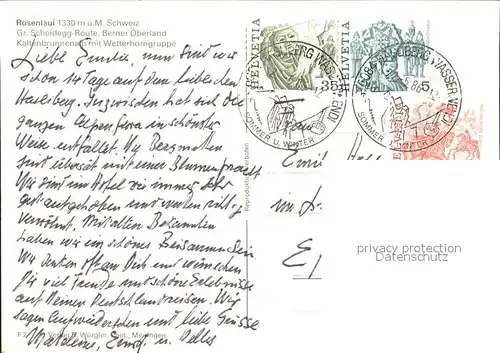 Rosenlaui 1330 m ü.M. Schweiz
Gr. Scheidegg-Route, Berner Oberland
Kaltenbrunnenalp mit Wetterhorngruppe
Liebe Emilie, nun sind wir
schon 14 Tage auf dem lieblichen
Hasliberg. Inzwischen hat sich die
ganze Alpenflora in schönster
Weise entfaltet. Die Bergmatten
sind übersät mit einer Blumenpracht
Wir sind im Hotel wie immer sehr
gut aufgehoben und werden richtig
verwöhnt. Mit alten Bekannten
haben wir ein schönes Beisammensein
Wir denken oft an Dich und wünschen
Dir viel Freude und schöne Erlebnisse
auf Deiner Deutschlandreise. Wir
sagen auf Wiedersehen und liebe Grüsse
Madeleine, Ernst u. Nelly
Verlag B. Würgler, Meiringen
Reproduktion verboten
HELVETIA 35
HELVETIA 5
HELVETIA
HASLIBERG WASSERWENDI
SOMMER U. WINTER
HASLIBERG WASSERWENDI
SOMMER U. WINTER
Frau
privacy protection
Datenschutz